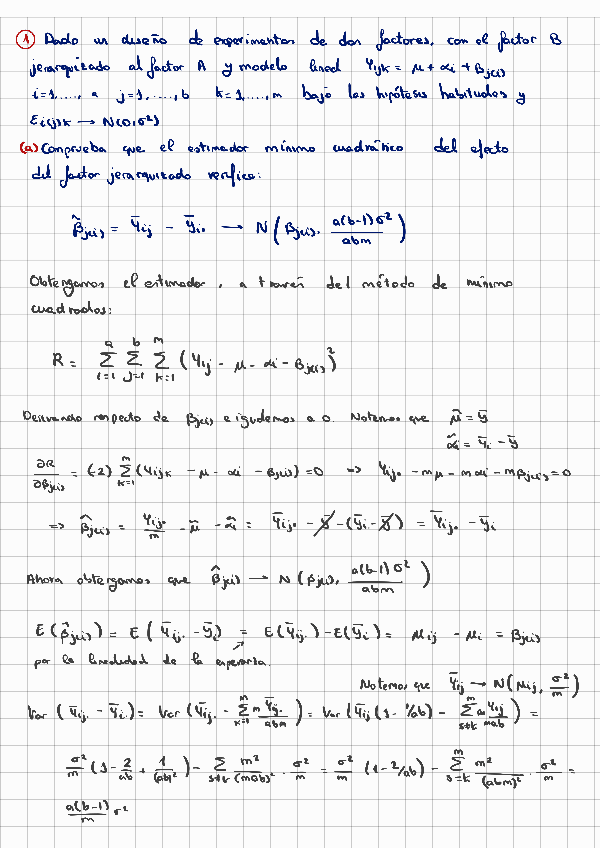 ① Dado un diseño de experimentos de dos factores, con el factor B
jerarquizado al factor A y modelo lineal Yijk = μ + αi + βj(i)
i=1,...., a j=1,....,b k=1,....,m bajo las hipótesis habituales y
Ei(j)k → N(0,σ²)
(a) Comprueba que el estimador mínimo cuadrático del efecto
del factor jerarquizado verifica:
β̂j(i) = Ȳij - ȳi. → N(βj(i), a(b-1)σ²/abm)
Obtengamos el estimador, a través del método de mínimo
cuadrados:
R = Σ(i=1..a) Σ(j=1..b) Σ(k=1..m) (Yij - μ - αi - βj(i))²
Derivando respecto de βj(i) e igualemos a 0. Notemos que μ̂ = ȳ
α̂i = ȳi - ȳ
∂R/∂βj(i) = (-2) Σ(k=1..m) (Yijk - μ - αi - βj(i)) = 0 ⇒ Yij. - mμ - mαi - mβj(i) = 0
⇒ β̂j(i) = Yij./m - μ̂ - α̂i = Ȳij. - ȳ - (ȳi - ȳ) = Ȳij. - ȳi
Ahora obtengamos que β̂j(i) → N(βj(i), a(b-1)σ²/abm)
E(β̂j(i)) = E(Ȳij. - ȳi) = E(Ȳij.) - E(Ȳi) = μij - μi = βj(i)
por la linealidad de la esperanza.
Notemos que Ȳij → N(μij, σ²/m)
Var(Ȳij. - Ȳi.) = Var(Ȳij. - Σ(k=1..m) m Ȳij./abm) = Var(Ȳij(1 - 1/ab) - Σ(s≠k..m) m Yij/mab) =
σ²/m (1 - 2/ab + 1/(ab)²) - Σ(s≠k) m²/(mab)² · σ²/m = σ²/m (1 - 2/ab) - Σ(s=k..m) m²/(abm)² · σ²/m =
a(b-1)/m σ²